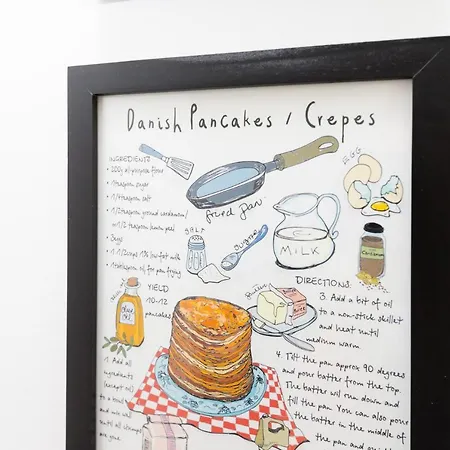 Danish Pancakes / Crepes
INGREDIENTS:
200g all-purpose flour
1 teaspoon sugar
1/4 teaspoon salt
1/2 teaspoon ground cardamom/
or 1/2 teaspoon lemon peel
3 eggs
1 1/2 cups 1% low-fat milk
1 tablespoon oil for pan frying
YIELD
10-12
pancakes
fried pan
EGG
SALT
sugar
MILK
Cardamom
Butter
olive
OIL
1. Add all
ingredients
(except oil)
to a bowl
and mix well
until all
are gone.
DIRECTIONS:
3. Add a bit of oil
to a non-stick skillet
and heat until
medium warm.
4. Tilt the pan approx 90 degrees
and pour batter from the top.
The batter will run down and
fill the pan. You can also pour
the batter in the middle of
the pan and